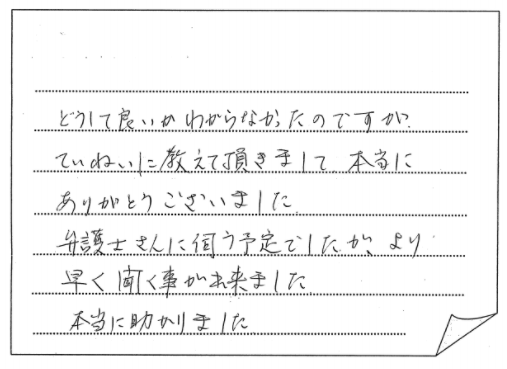 どうして良いかわからなかったのですが、
ていねいに教えて頂きまして 本当に
ありがとうございました。
弁護士さんに伺う予定でしたが、より
早く聞く事が出来ました
本当に助かりました